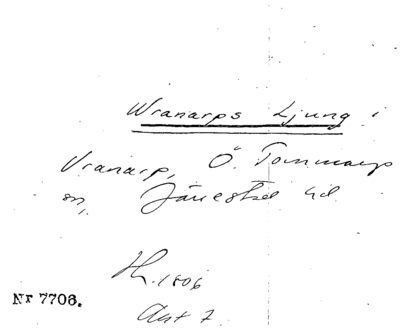 Wranarps Ljung i
Vranarp, Ö. Tommarp
sn, Järrestad hd
Hr. 1806
Akt 7
Nr 7706.